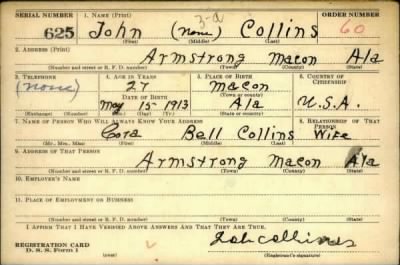 SERIAL NUMBER 1. NAME (Print) 3-a ORDER NUMBER
625 John (none) Collins 60
(First) (Middle) (Last)
2. ADDRESS (Print)
Armstrong Macon Ala
(Number and street or R. F. D. number) (Town) (County) (State)
3. TELEPHONE 4. AGE IN YEARS 5. PLACE OF BIRTH 6. COUNTRY OF CITIZENSHIP
(none) 27 Macon
DATE OF BIRTH (Town or county)
May 15-1913 Ala U.S.A.
(Exchange) (Number) (Mo.) (Day) (Yr.) (State or country)
7. NAME OF PERSON WHO WILL ALWAYS KNOW YOUR ADDRESS 8. RELATIONSHIP OF THAT PERSON
Cora Bell Collins Wife
(Mr., Mrs., Miss) (First) (Middle) (Last)
9. ADDRESS OF THAT PERSON
Armstrong Macon Ala
(Number and street or R. F. D. number) (Town) (County) (State)
10. EMPLOYER'S NAME
11. PLACE OF EMPLOYMENT OR BUSINESS
(Number and street or R. F. D. number) (Town) (County) (State)
I AFFIRM THAT I HAVE VERIFIED ABOVE ANSWERS AND THAT THEY ARE TRUE.
REGISTRATION CARD
D. S. S. Form 1 (Registrant's signature)